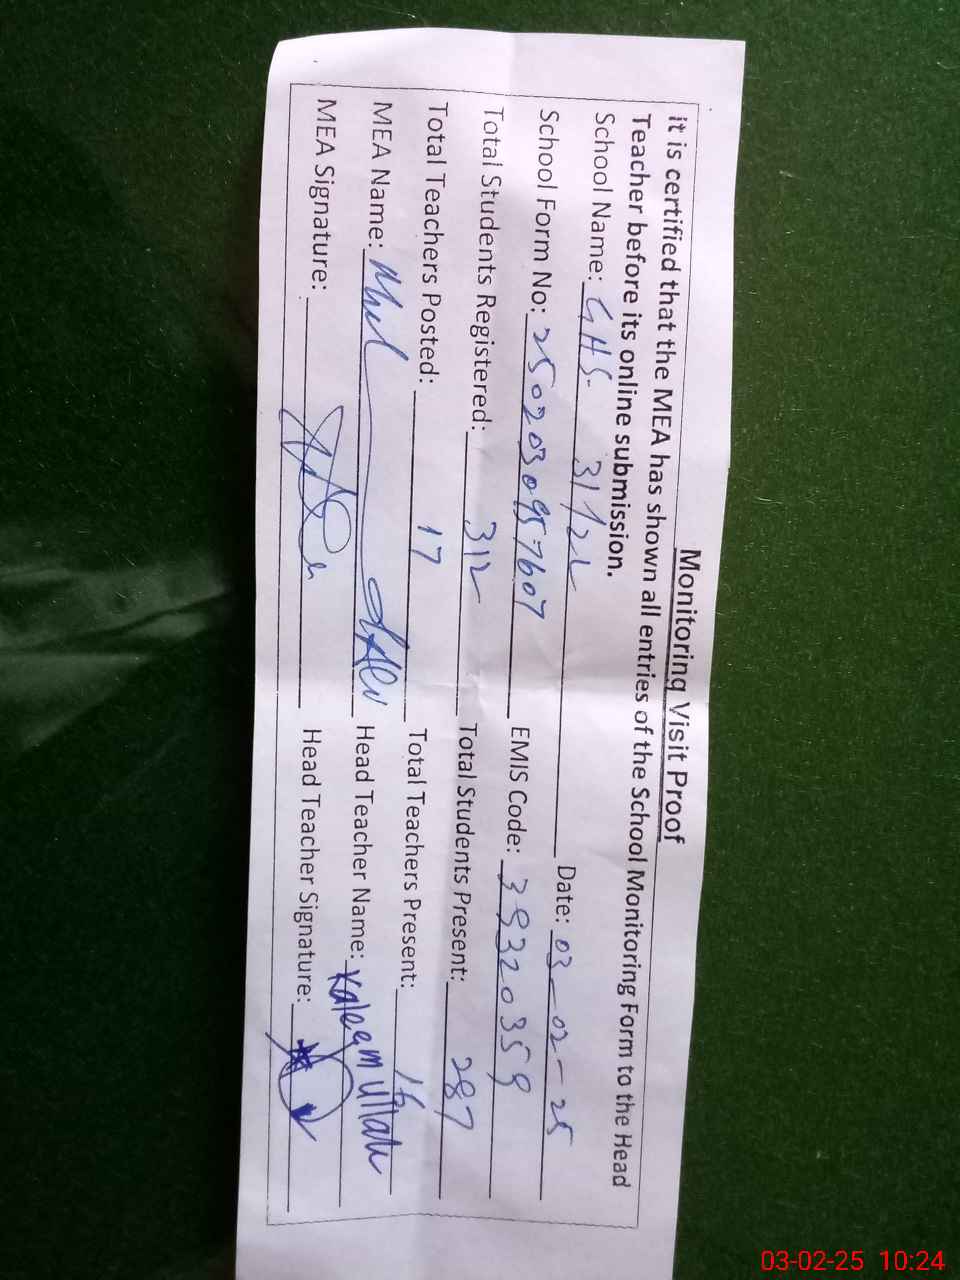 Monitoring Visit Proof
it is certified that the MEA has shown all entries of the School Monitoring Form to the Head
Teacher before its online submission.
School Name: GHS. 31/2L Date: 03-02-25
School Form No: 2502030957607 EMIS Code: 39320359
Total Students Registered: 312 Total Students Present: 287
Total Teachers Posted: 17 Total Teachers Present: 16
MEA Name: Head Teacher Name: Kaleem Ullah
MEA Signature: Head Teacher Signature:
03-02-25 10:24